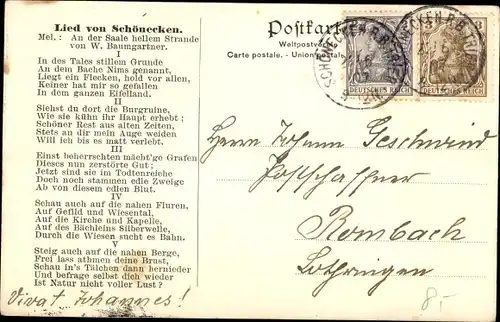 Lied von Schönecken.
Mel.: An der Saale hellem Strande
von W. Baumgartner.
I
In des Tales stillem Grunde
An dem Bache Nims genannt,
Liegt ein Flecken, hold vor allen,
Keiner hat mir so gefallen
In dem ganzen Eifelland.
II
Siehst du dort die Burgruine,
Wie sie kühn ihr Haupt erhebt;
Schöner Rest aus alten Zeiten,
Stets an dir mein Auge weiden
Will ich bis es matt verlebt.
III
Einst beherrschten mächt'ge Grafen
Dieses nun zerstörte Gut;
Jetzt sind sie im Todtenreiche
Doch noch stammen edle Zweige
Ab von diesem edlen Blut.
IV
Schau auch auf die nahen Fluren,
Auf Gefild und Wiesental,
Auf die Kirche und Kapelle,
Auf des Bächleins Silberwelle,
Durch die Wiesen sucht es Bahn.
V
Steig auch auf die nahen Berge,
Frei lass athmen deine Brust,
Schau in's Tälchen dann hernieder
Und befrage selbst dich wieder
Ist Natur nicht voller Lust?
Vivat Johannes!
Postkarte
Weltpostverein
Carte postale. - Union postale
DEUTSCHES REICH
DEUTSCHES REICH
3
Herrn Johann Geschwind
Postschaffner
Rombach
Lothringen
8,-